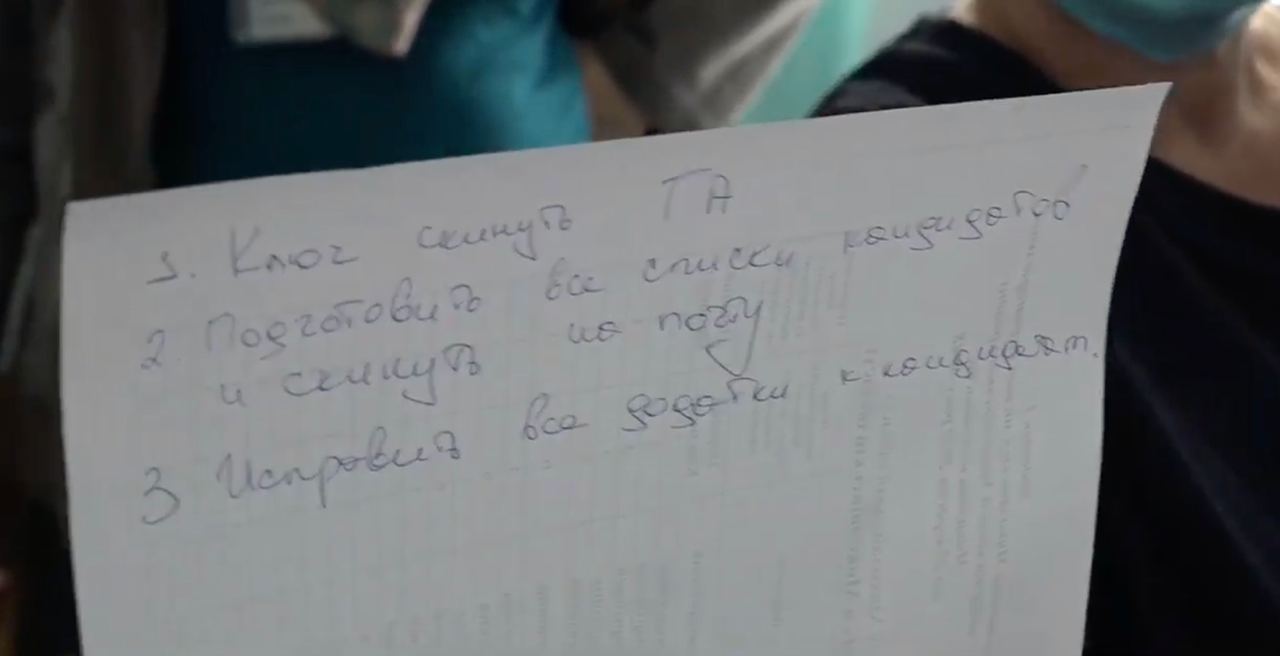 1. Ключ скинуть ТА
2. Подготовить все списки кандидатов
и скинуть на почту
3 Исправить все додатки к кандидат.